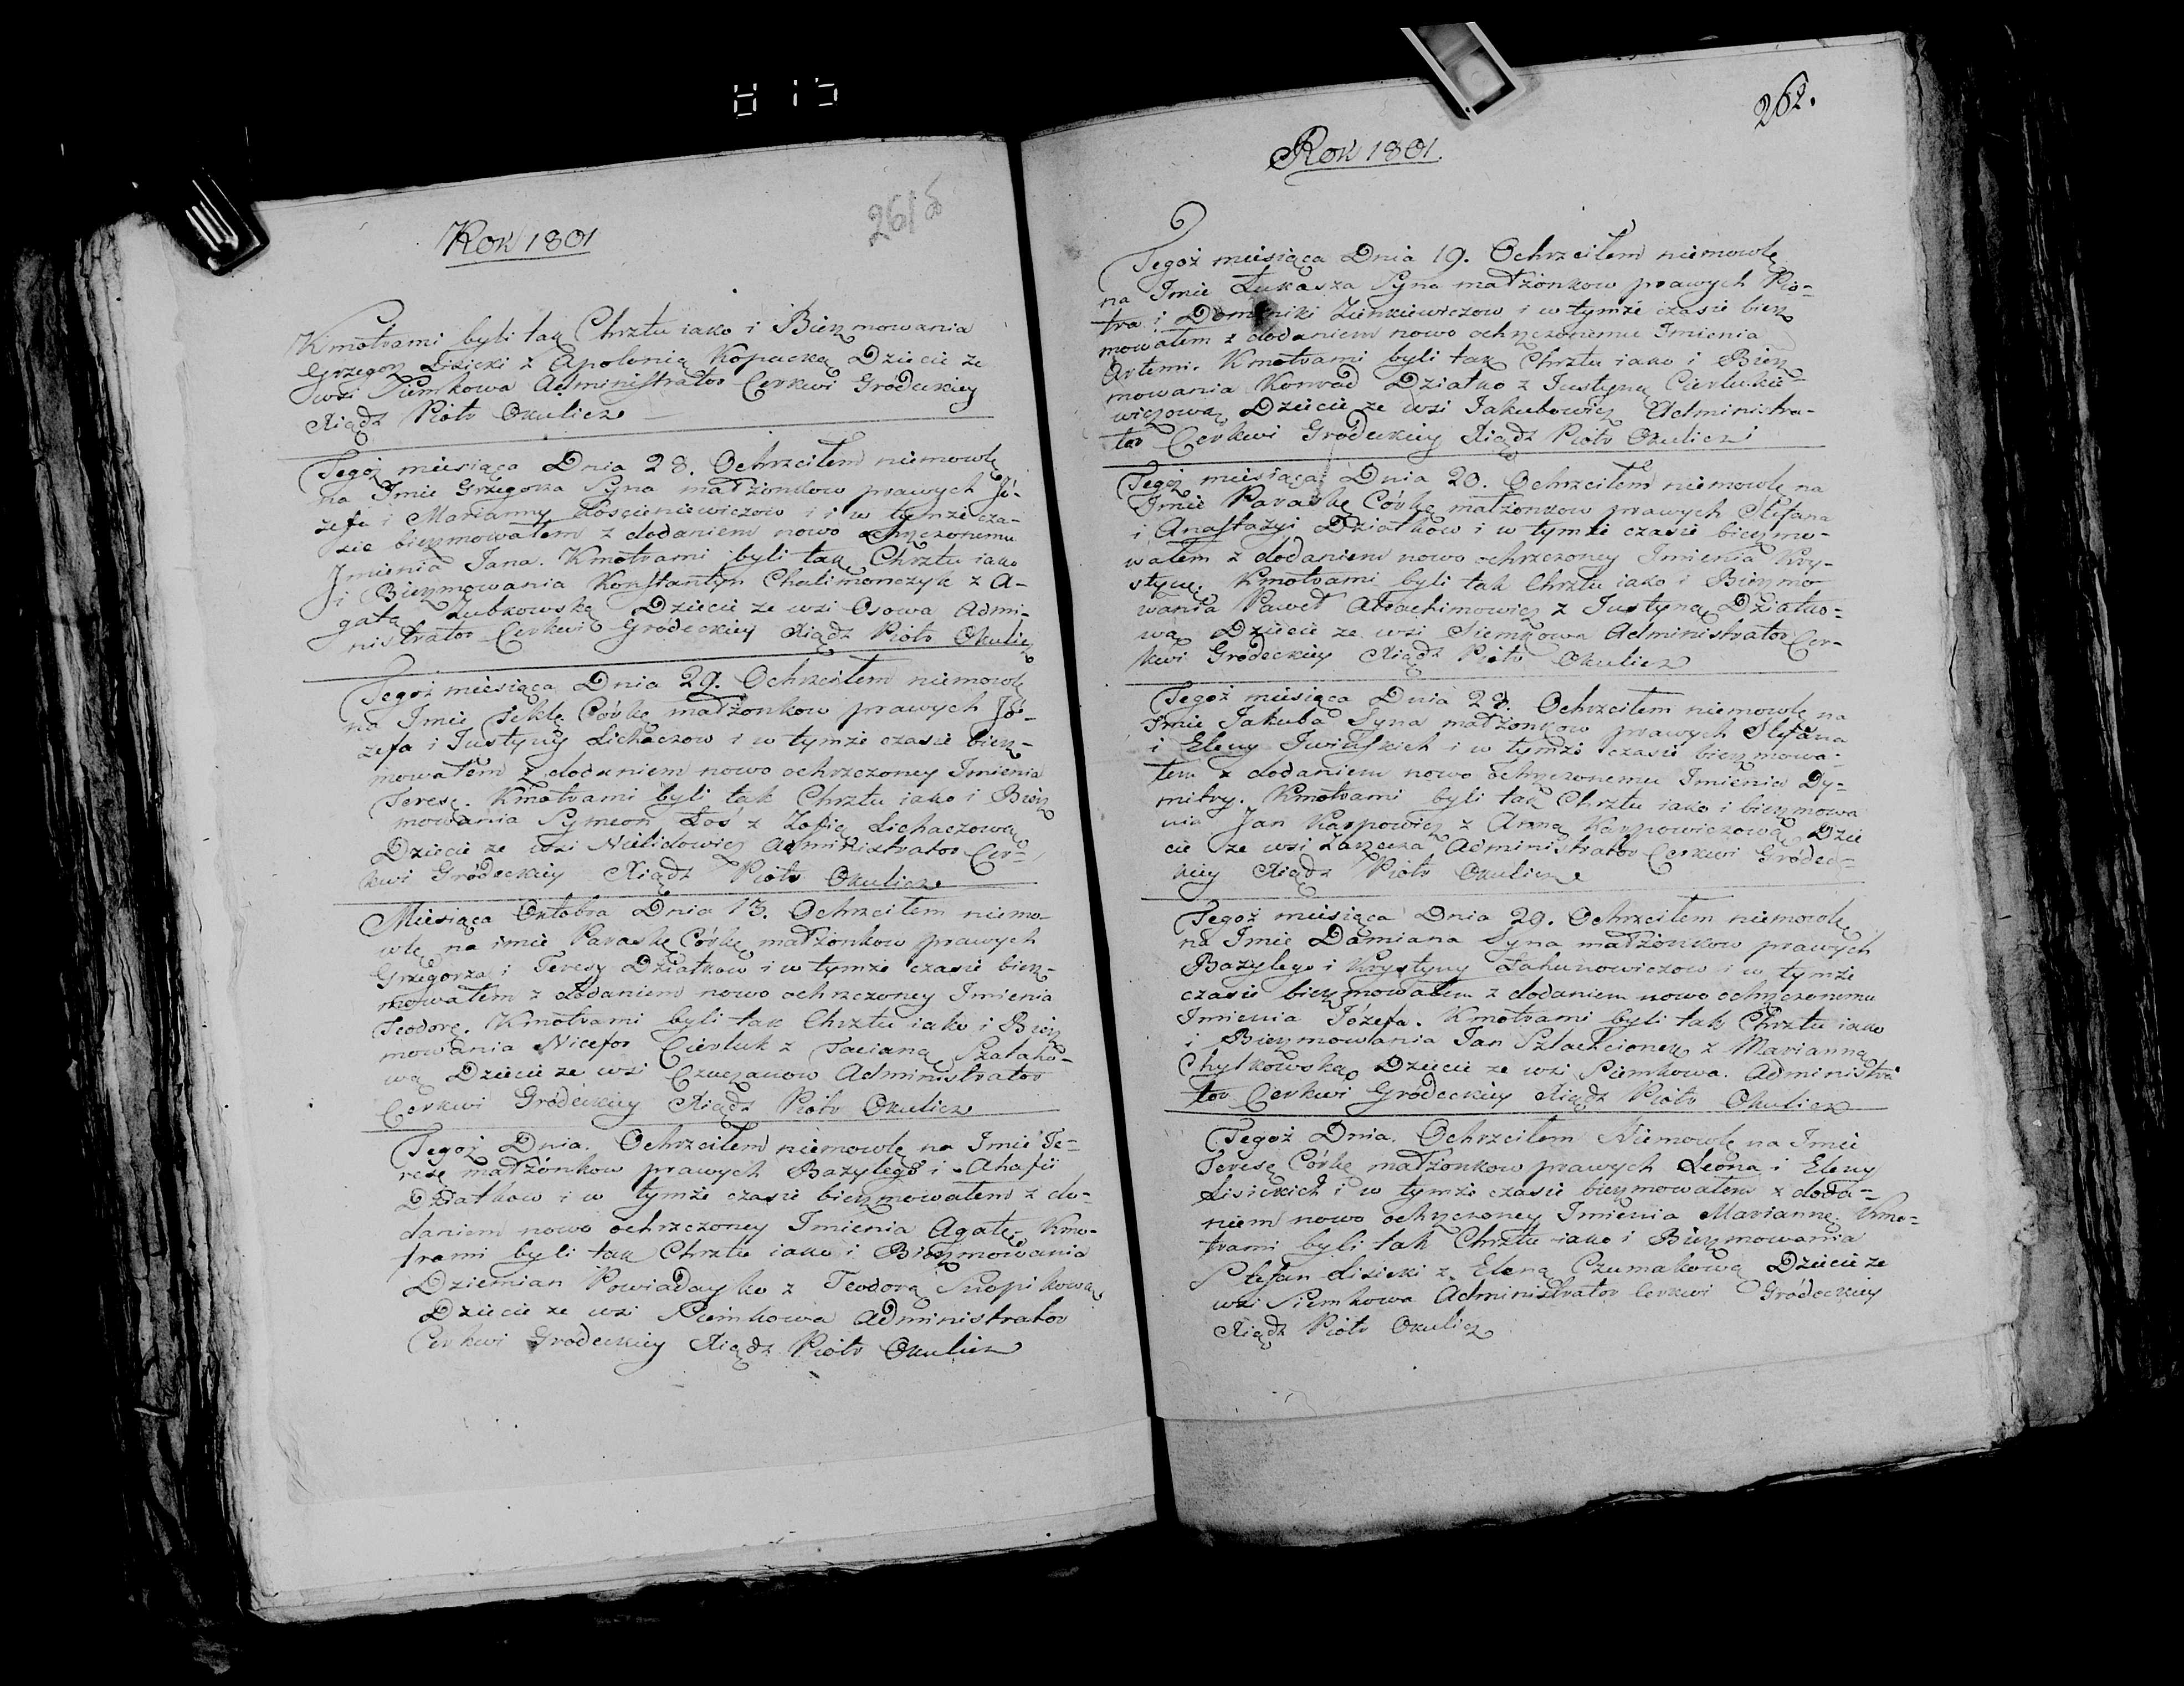 815
Rok 1801
261
Kmotrami byli tak Chrztu iako i Bierzmowania
Grzegorz Lisicki z Apolonią Kopacką Dziecie ze
wsi Siemkowa Administrator Cerkwi Grodeckiey
Xiądz Piotr Okulicz
Tegoż miesiąca Dnia 28. Ochrzciłem niemowlę
na Imie Grzegorza Syna małżonkow prawych Jó-
zefa i Marianny Kościeniewiczow i i w tymże cza-
sie bierzmowałem z dodaniem nowo ochrzczonemu
Imienia Jana. Kmotrami byli tak Chrztu iako
i Bierzmowania Konstantyn Chalimonczyk z A-
gatą Zubkowską Dziecie ze wsi Osowa Admi-
nistrator Cerkwi Gródeckiey Xiądz Piotr Okulicz
Tegoż miesiąca Dnia 29. Ochrzciłem niemowlę
na Imie Teklę Córkę małżonkow prawych Jó-
zefa i Justyny Lichaczow i w tymże czasie bierz-
mowałem z dodaniem nowo ochrzczoney Imienia
Teresę. Kmotrami byli tak Chrztu iako i Bierz
mowania Symeon Łoś z Zofią Lichaczową
Dziecie ze wsi Nielidowicz Administrator Cer-
kwi Gródeckiey Xiądz Piotr Okulicz
Miesiąca Oktobra Dnia 13. Ochrzciłem niemo-
wlę na imie Paraskę Córkę małżonkow prawych
Grzegorza i Teresy Dziatkow i w tymże czasie bierz-
mowałem z dodaniem nowo ochrzczoney Imienia
Teodorę. Kmotrami byli tak Chrztu iako i Bierz
mowania Nicefor Cierluk z Tacianą Szałaho-
wą Dziecie ze wsi Administrator
Cerkwi Gródeckiey Xiądz Piotr Okulicz
Tegoż Dnia. Ochrzciłem niemowlę na Imie Te-
resę małżonkow prawych Bazylego i Ahafii
Dziatkow i w tymże czasie bierzmowałem z do-
daniem nowo ochrzczoney Imienia Agatę. Kmo-
trami byli tak Chrztu iako i Bierzmowania
Dziemian Powiadayko z Teodorą Snopikową
Dziecie ze wsi Siemkowa Administrator
Cerkwi Grodeckiey Xiądz Piotr Okulicz
262.
Rok 1801.
Tegoż miesiąca Dnia 19. Ochrzciłem niemowlę
na Imie Łukasza Syna małżonkow prawych Pio-
tra i Dominiki Zienkiewiczow i w tymże czasie bierz
mowałem z dodaniem nowo ochrzczonemu Imienia
Artemi. Kmotrami byli tak Chrztu iako i Bierz
mowania Konrad Dziatko z Justyną Cierlukie-
wiczową Dziecie ze wsi Jakubowicz Administra-
tor Cerkwi Gródeckiey Xiądz Piotr Okulicz
Tegoż miesiąca Dnia 20. Ochrzciłem niemowlę na
Imie Paraskę Córkę małżonkow prawych Stefana
i Anastazyi Dziatkow i w tymże czasie bierzmo-
wałem z dodaniem nowo ochrzczoney Imienia Kry-
stynę. Kmotrami byli tak Chrztu iako i Bierzmo
wania Paweł Atrachimowicz z Justyną Dziatko-
wą Dziecie ze wsi Siemkowa Administrator Cer-
kwi Gródeckiey Xiądz Piotr Okulicz
Tegoż miesiąca Dnia 28. Ochrzciłem niemowlę na
Imie Jakuba Syna małżonkow prawych Stefana
i Eleny i w tymże czasie bierzmowa-
łem z dodaniem nowo ochrzczonemu Imienia Dy-
mitry. Kmotrami byli tak Chrztu iako i bierzmowa
nia Jan Karpowicz z Anną Karpowiczową Dzie
cie ze wsi Zarzecza Administrator Cerkwi Gródec-
kiey Xiądz Piotr Okulicz
Tegoż miesiąca Dnia 29. Ochrzciłem niemowlę
na Imie Damiana Syna małżonkow prawych
Bazylego i Krystyny Łahunowiczow i w tymże
czasie bierzmowałem z dodaniem nowo ochrzczonemu
Imienia Józefa. Kmotrami byli tak Chrztu iako
i Bierzmowania Jan Szlachcionek z Marianną
Chylkowską Dziecie ze wsi Siemkowa. Administra
tor Cerkwi Gródeckiey Xiądz Piotr Okulicz
Tegoż Dnia. Ochrzciłem Niemowlę na Imie
Teresę Córkę małżonkow prawych Leona i Eleny
Lisickich i w tymże czasie bierzmowałem z doda-
niem nowo ochrzczoney Imienia Mariannę. Kmo-
trami byli tak Chrztu iako i Bierzmowania
Stefan Lisicki z Eleną Czumakową Dziecie ze
wsi Siemkowa Administrator Cerkwi Gródeckiey
Xiądz Piotr Okulicz